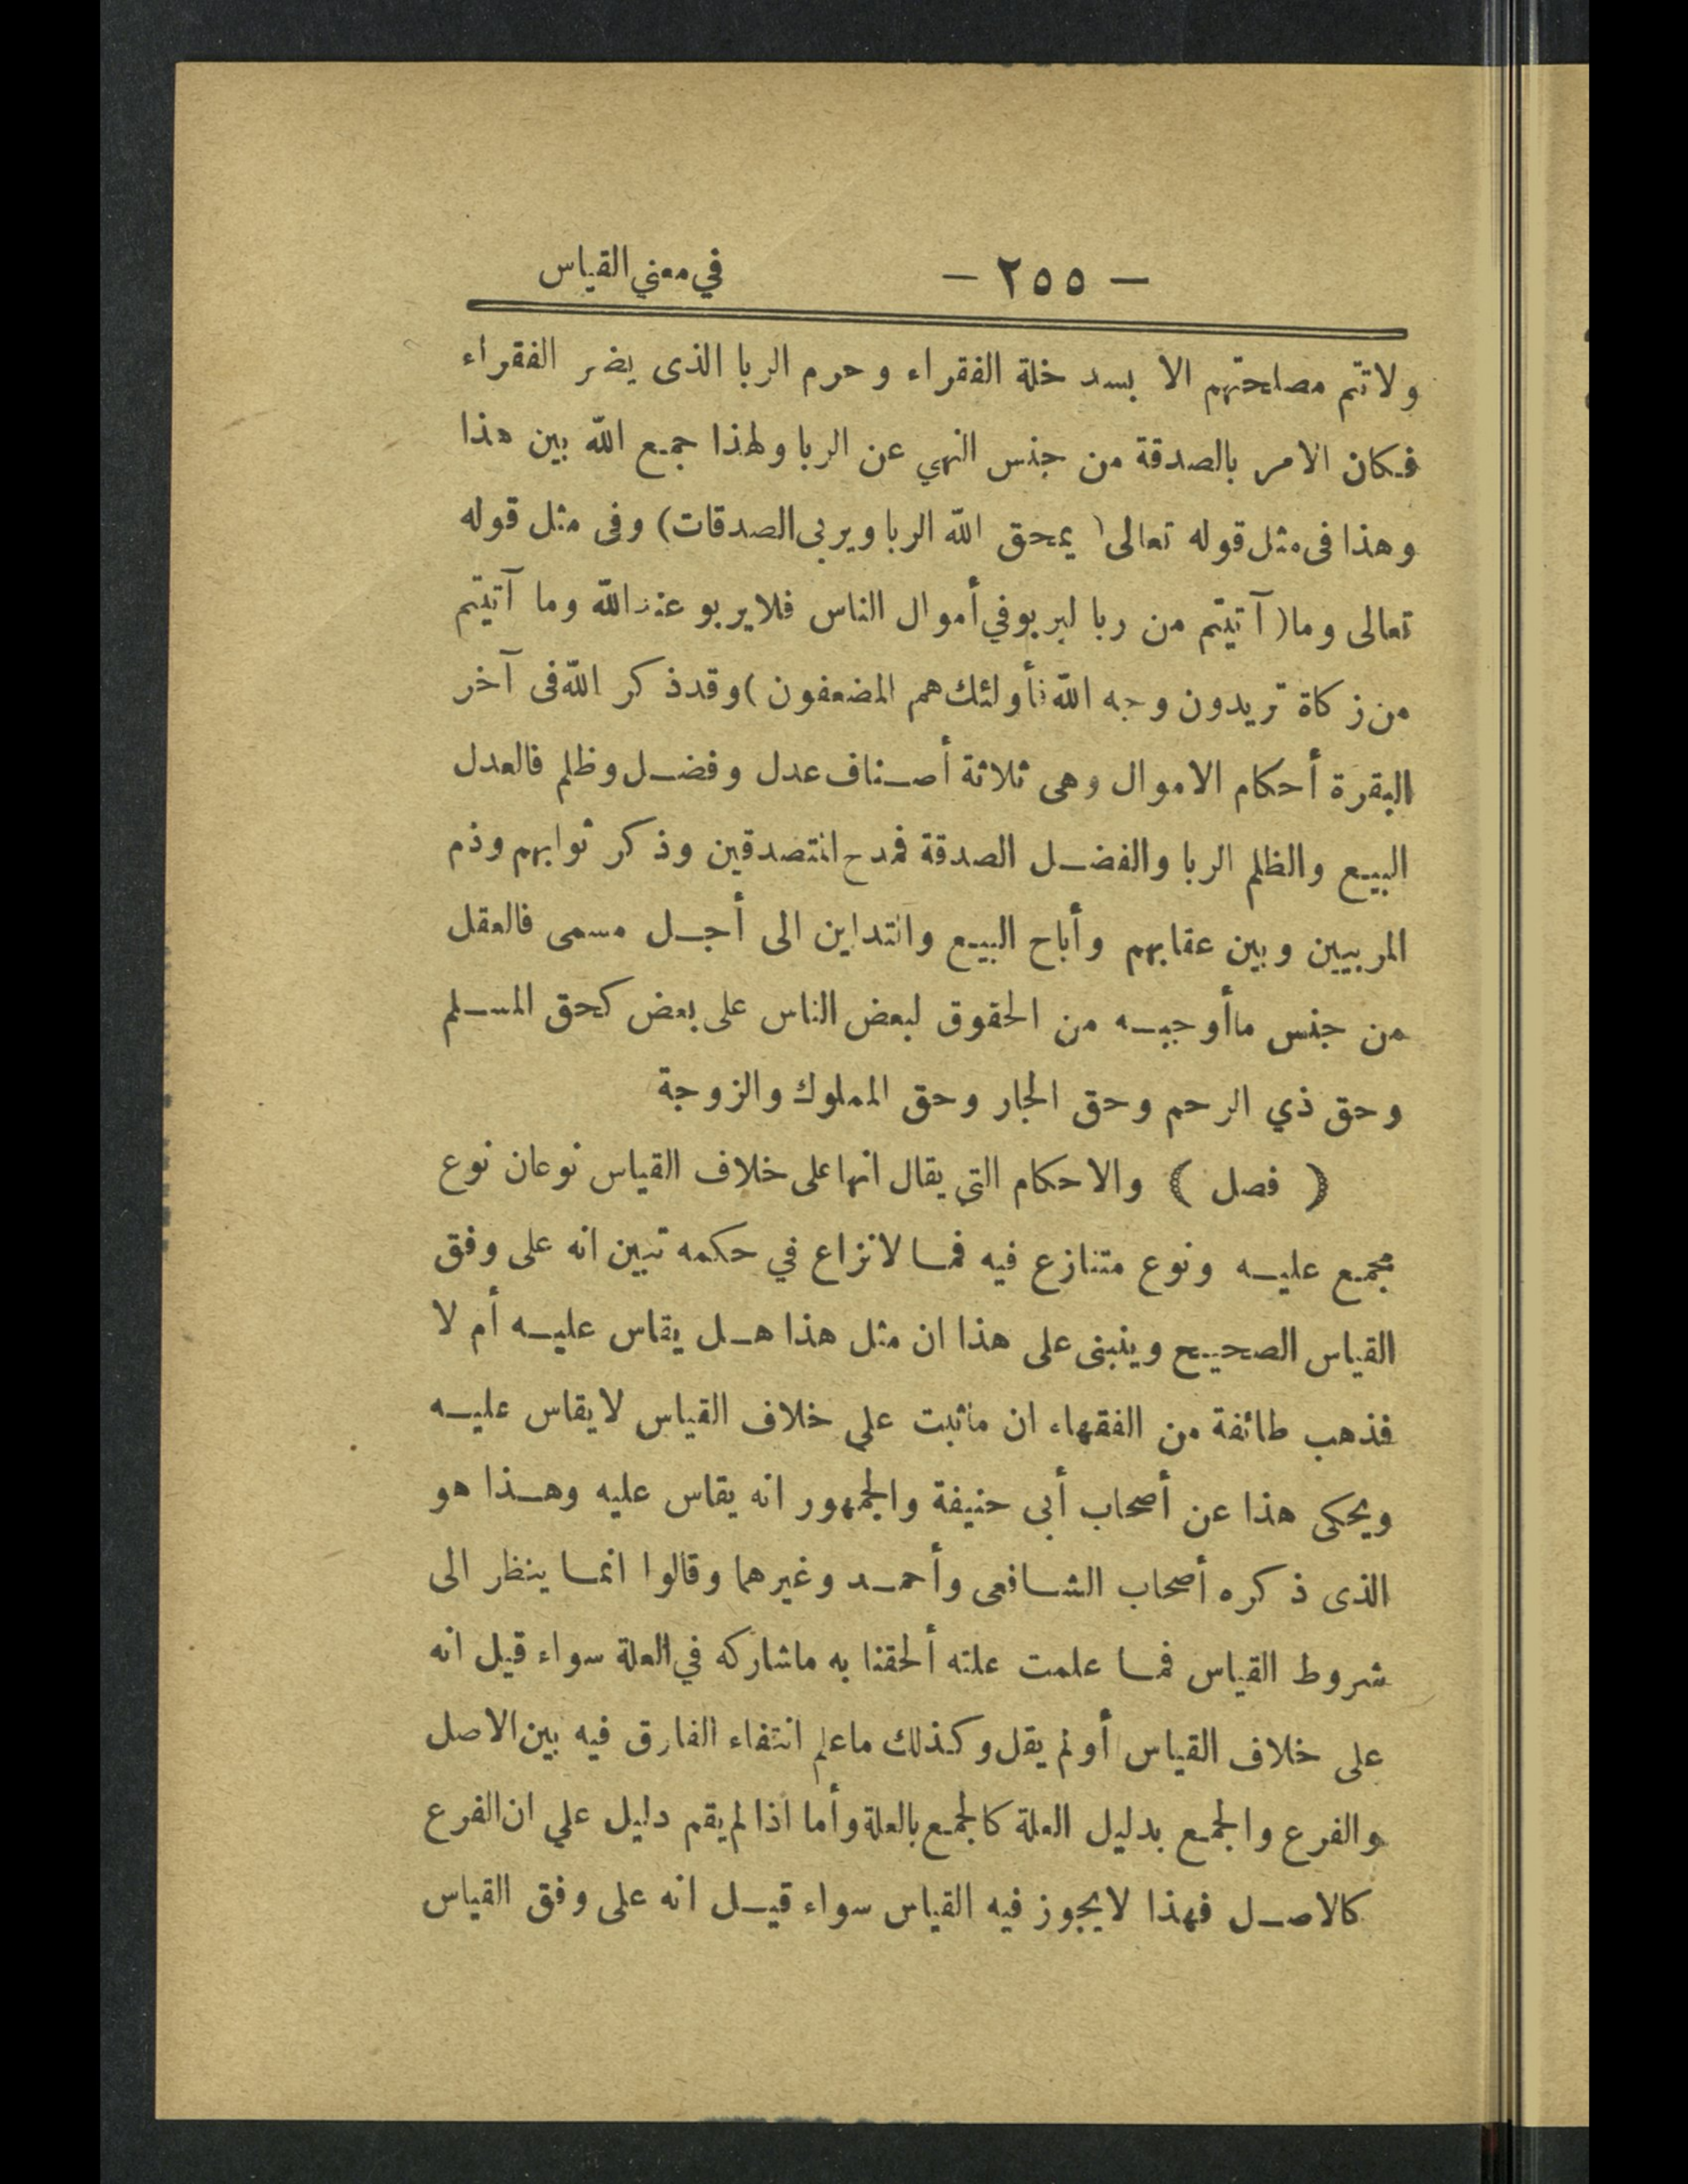 — ٢٥٥ — في معني القياس
ولاتتم مصلحتهم الا بسد خلة الفقراء وحرم الربا الذى يضر الفقراء
فكان الامر بالصدقة من جنس النهي عن الربا ولهذا جمع الله بين هذا
وهذا فى مثل قوله تعالى ( يمحق الله الربا ويربى الصدقات) وفى مثل قوله
تعالى وما( آتيتم من ربا ليربو في أموال الناس فلا يربو عند الله وما آتيتم
من زكاة تريدون وجه الله فأولئك هم المضعفون ) وقد ذكر الله فى آخر
البقرة أحكام الاموال وهى ثلاثة أصناف عدل وفضل وظلم فالعدل
البيع والظلم الربا والفضل الصدقة فمدح المتصدقين وذكر ثوابهم وذم
المربيين وبين عقابهم وأباح البيع والتداين الى أجل مسمى فالعقل
من جنس ماأوجبه من الحقوق لبعض الناس على بعض كحق المسلم
وحق ذي الرحم وحق الجار وحق المملوك والزوجة
( فصل ) والاحكام التي يقال انها على خلاف القياس نوعان نوع
مجمع عليه ونوع متنازع فيه فما لانزاع في حكمه تبين انه على وفق
القياس الصحيح وينبنى على هذا ان مثل هذا هل يقاس عليه أم لا
فذهب طائفة من الفقهاء ان ماثبت علي خلاف القياس لايقاس عليه
ويحكى هذا عن أصحاب أبى حنيفة والجمهور انه يقاس عليه وهذا هو
الذى ذكره أصحاب الشافعى وأحمد وغيرهما وقالوا انما ينظر الى
شروط القياس فما علمت علته ألحقنا به ماشاركه في العلة سواء قيل انه
على خلاف القياس أو لم يقل وكذلك ماعلم انتفاء الفارق فيه بين الاصل
والفرع والجمع بدليل العلة كالجمع بالعلة وأما اذا لم يقم دليل علي ان الفرع
كالاصل فهذا لايجوز فيه القياس سواء قيل انه على وفق القياس